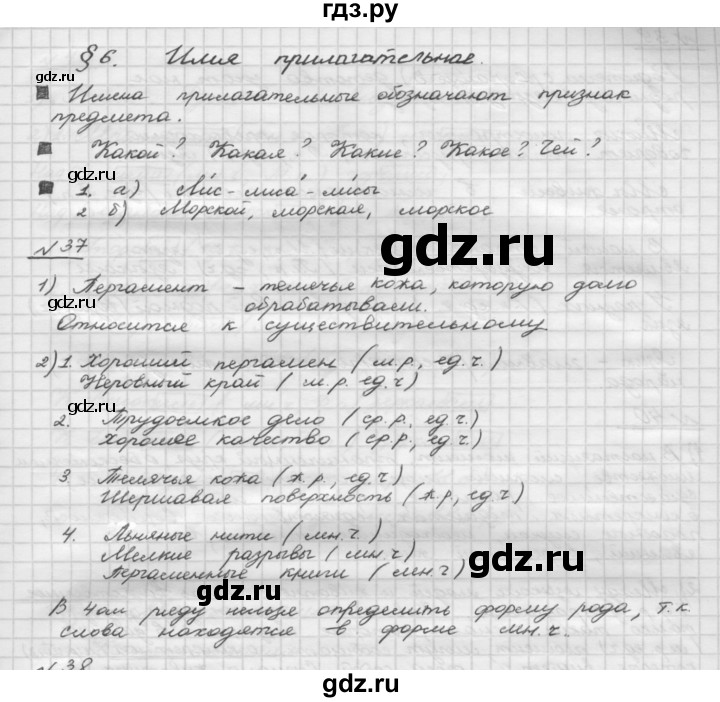 гдз.ру
§6. Имя прилагательное.
gdz.ru
Имена прилагательные обозначают признак
предмета.
Какой? Какая? Какие? Какое? Чей?
gdz.ru
1. а) Лис - лиса - лисы
2 б) Морской, морская, морское
gdz.ru
№37
1) Пергамент - телячья кожа, которую долго
gdz.ru
обрабатывали.
Относится к существительному
2) 1. Хороший пергамен (м.р., ед.ч.)
Неровный край (м.р. ед.ч)
gdz.ru
2. Трудоемкое дело (ср.р., ед.ч.)
Хорошее качество (ср.р, ед.ч.)
3. Телячья кожа (ж.р., ед.ч)
Шершавая поверхность (ж.р, ед.ч.)
4. Льняные нити (мн.ч.)
Мелкие разрывы (мн.ч)
gdz.ru
Пергаменные книги (мн.ч)
gdz.ru
В 4ом ряду нельзя определить форму рода, т.к.
слова находятся в форме мн.ч.
№38
gdz.ru
gdz.ru